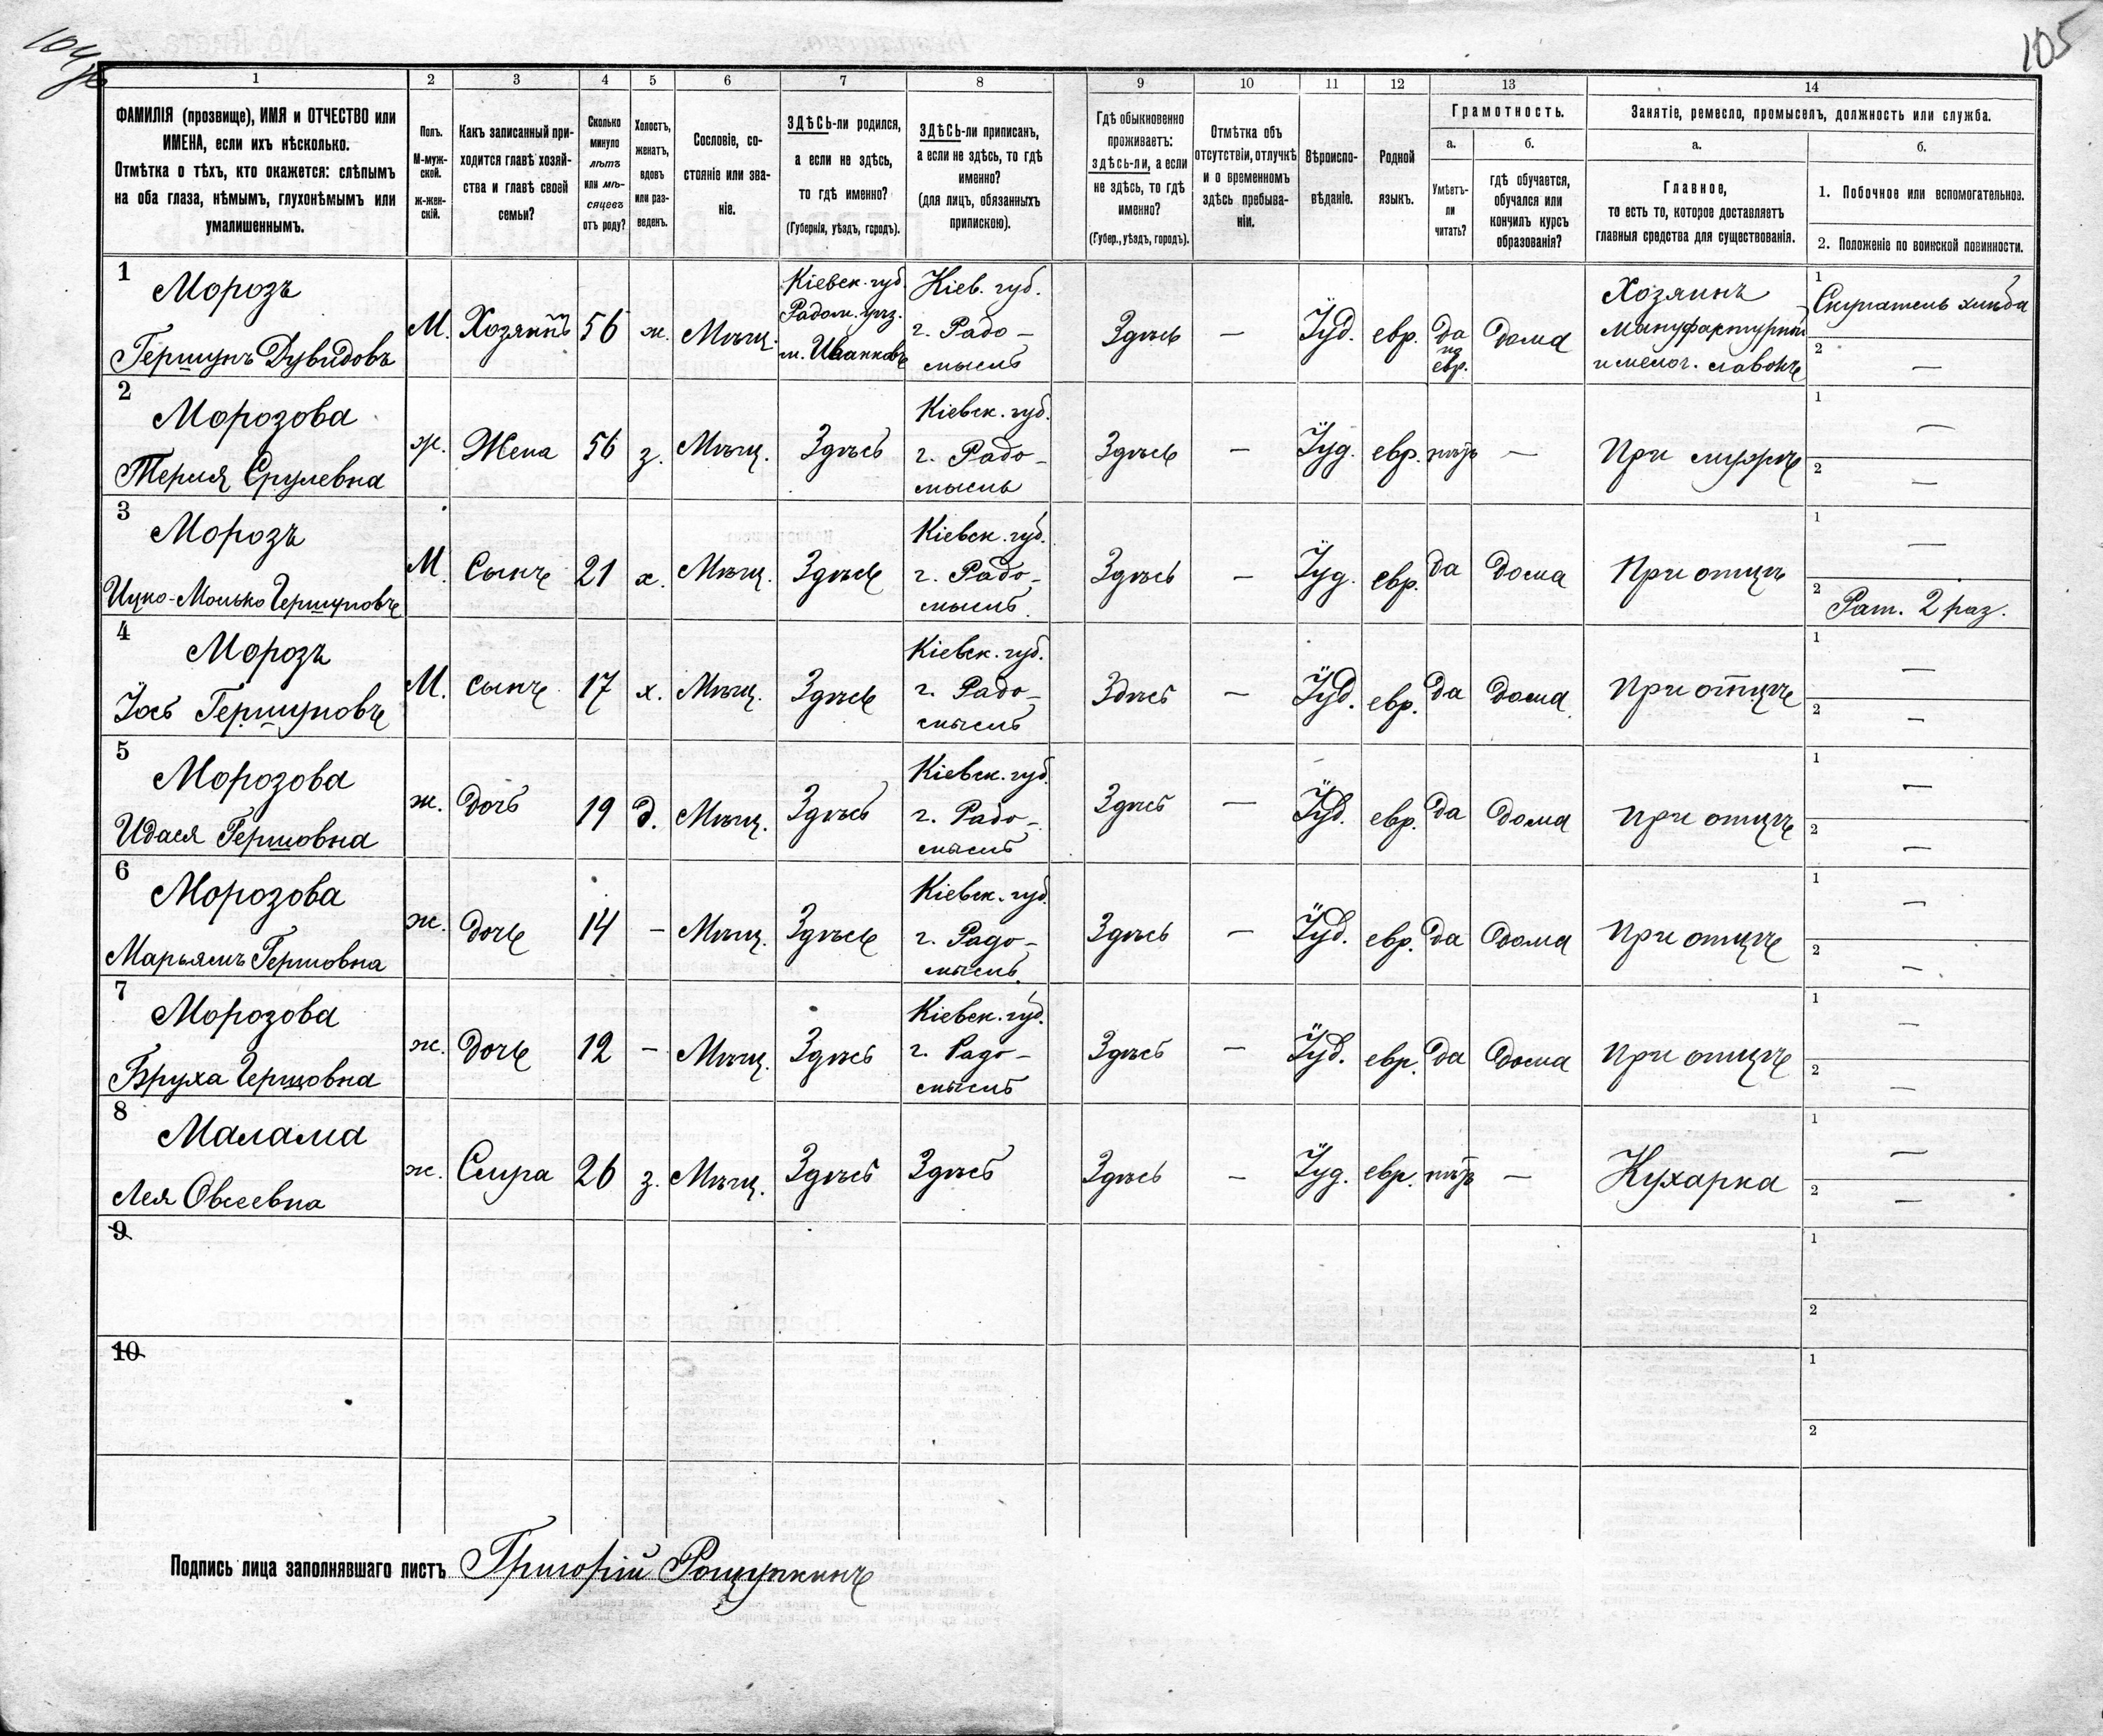 105
1 2 3 4 5 6 7 8 9 10 11 12 13 14
ФАМИЛІЯ (прозвище), ИМЯ и ОТЧЕСТВО или
ИМЕНА, если ихъ нѣсколько.
Отмѣтка о тѣхъ, кто окажется: слѣпымъ
на оба глаза, нѣмымъ, глухонѣмымъ или
умалишеннымъ.
Полъ.
М-муж-
ской.
ж-жен-
скій.
Какъ записанный при-
ходится главѣ хозяй-
ства и главѣ своей
семьи?
Сколько
минуло
лѣтъ
или мѣ-
сяцевъ
отъ роду?
Холостъ,
женатъ,
вдовъ
или раз-
веденъ.
Сословіе, со-
стояніе или зва-
ніе.
ЗДѢСЬ-ли родился,
а если не здѣсь,
то гдѣ именно?
(Губернія, уѣздъ, городъ).
ЗДѢСЬ-ли приписанъ,
а если не здѣсь, то гдѣ
именно?
(для лицъ, обязанныхъ
припискою).
Гдѣ обыкновенно
проживаетъ:
здѣсь-ли, а если
не здѣсь, то гдѣ
именно?
(Губер., уѣздъ, городъ).
Отмѣтка объ
отсутствіи, отлучкѣ
и о временномъ
здѣсь пребыва-
ніи.
Вѣроиспо-
вѣданіе.
Родной
языкъ.
Грамотность.
а.
Умѣетъ-
ли
читать?
б.
гдѣ обучается,
обучался или
кончилъ курсъ
образованія?
Занятіе, ремесло, промыселъ, должность или служба.
а.
Главное,
то есть то, которое доставляетъ
главныя средства для существованія.
б.
1. Побочное или вспомогательное.
2. Положеніе по воинской повинности.
1
Морозъ
Гершунъ Дувидовъ
М. Хозяинъ 56 ж. Мѣщ.
Кіевск. губ.
Радом. уѣз.
м. Иванковъ
Кіев. губ.
г. Радо-
мысль
Здѣсь — Іуд. евр.
да
по
евр.
дома
Хозяинъ
мануфактурной
и мелоч. лавокъ
1 Скупатель хлѣба
2 —
2
Морозова
Ерулевна
ж. Жена 56 з. Мѣщ. Здѣсь
Кіевск. губ.
г. Радо-
мысль
Здѣсь — Іуд. евр. нѣтъ — При мужѣ
1 —
2 —
3
Морозъ
Ицко-Мошко Гершуновъ
М. Сынъ 21 х. Мѣщ. Здѣсь
Кіевск. губ.
г. Радо-
мысль
Здѣсь — Іуд. евр. да дома При отцѣ
1 —
2 Рат. 2 раз.
4
Морозъ
Іось Гершуновъ
М. сынъ 17 х. Мѣщ. Здѣсь
Кіевск. губ.
г. Радо-
мысль
Здѣсь — Іуд. евр. да дома При отцѣ
1 —
2 —
5
Морозова
Идася Гершовна
ж. дочь 19 д. Мѣщ. Здѣсь
Кіевск. губ.
г. Радо-
мысль
Здѣсь — Іуд. евр. да дома При отцѣ
1 —
2 —
6
Морозова
Марьямъ Гершовна
ж. дочь 14 — Мѣщ. Здѣсь
Кіевск. губ.
г. Радо-
мысль
Здѣсь — Іуд. евр. да дома При отцѣ
1 —
2 —
7
Морозова
Бруха Гершовна
ж. дочь 12 — Мѣщ. Здѣсь
Кіевск. губ.
г. Радо-
мысль
Здѣсь — Іуд. евр. да дома При отцѣ
1 —
2 —
8
Малама
Лея Овсеевна
ж. 26 з. Мѣщ. Здѣсь Здѣсь Здѣсь — Іуд. евр. нѣтъ — Кухарка
1 —
2 —
9
1
2
10
1
2
Подпись лица заполнявшаго листъ Григорій